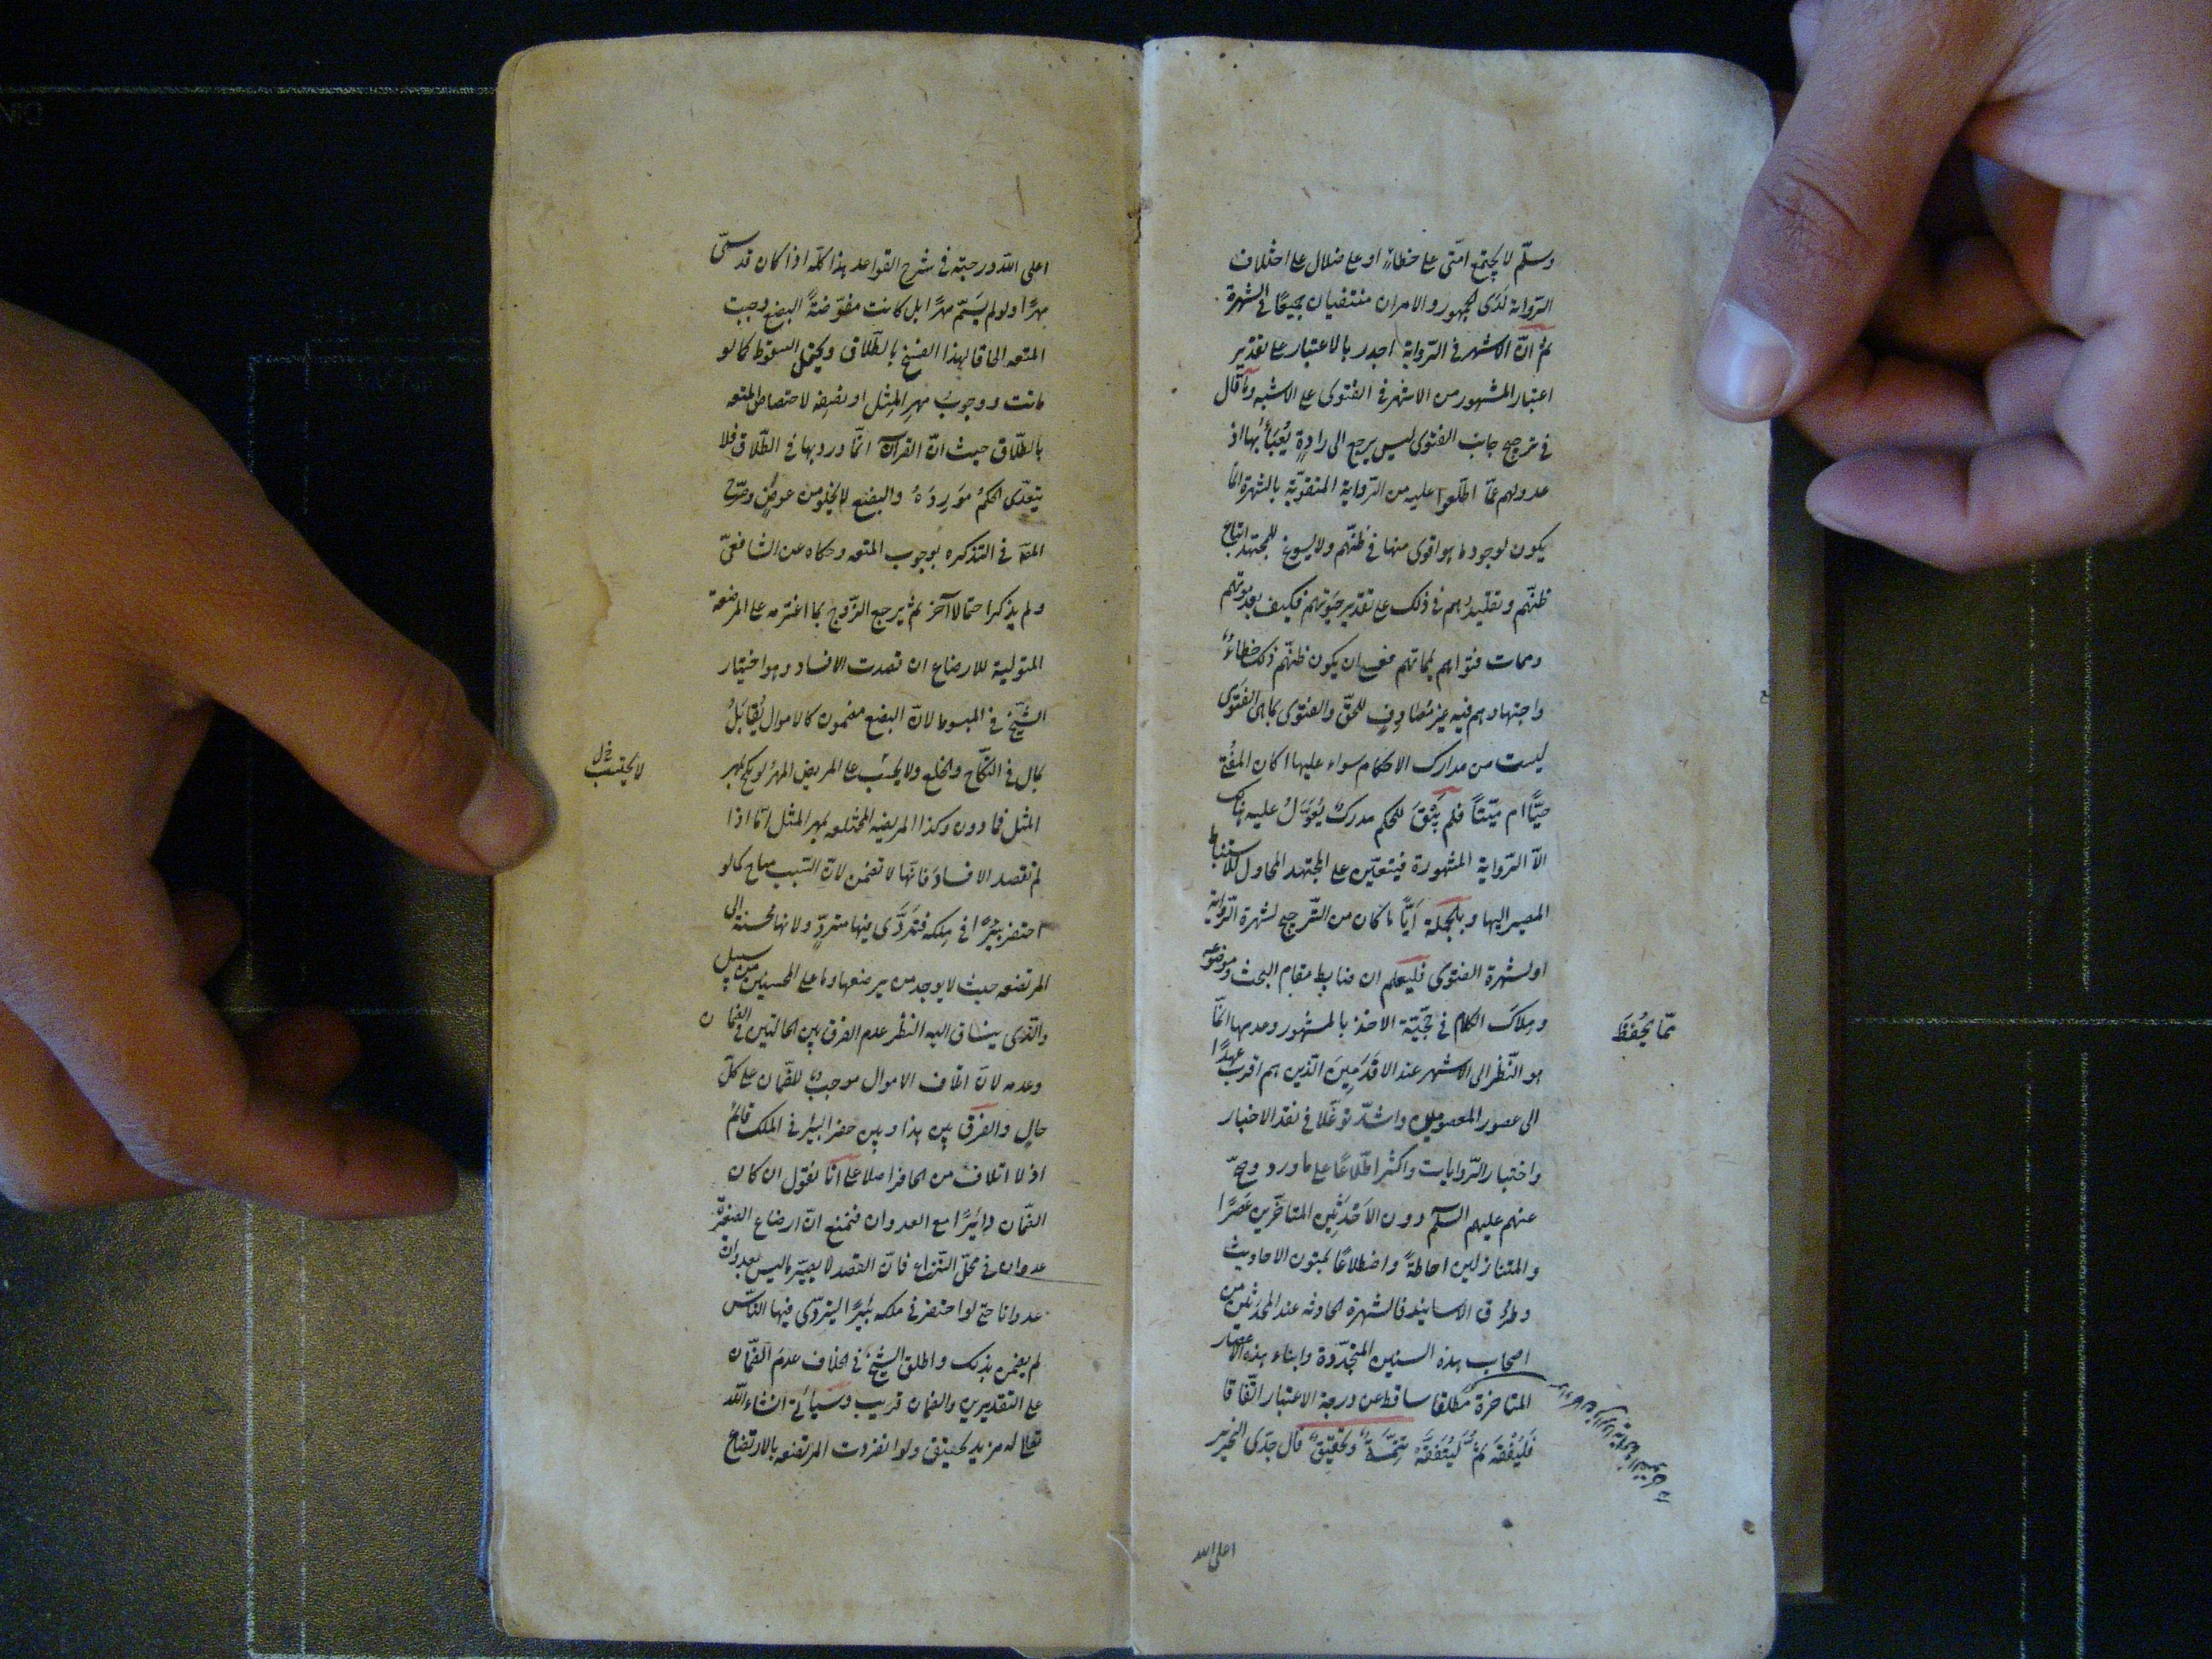 وسلّم لا يجتمع امّتى على خطاء او على ضلال على اختلاف
الرّواية لدى الجمهور والامران منتفيان جميعًا فى الشهرة
ثم انّ الاشهر فى الرّواية اجدر بالاعتبار على تقدير
اعتبار المشهور من الاشهر فى الفتوى على الاشبه وما قال
فى ترجيح جانب الفتوى ليس يرجع الى رادةٍ يُعبَأ بها اذ
عدولهم عمّا اطّلعوا عليه من الرّواية المتقوّية بالشهرة انّما
يكون لوجود ما هو اقوى منها فى ظنّهم ولا يسوغ للمجتهد اتباع
ظنّهم وتقليدُهم فى ذلك على تقدير حيوتهم فكيف بعد موتهم
وممات فتواهم بمماتهم فعسى ان يكون ظنّهم ذلك خطاءً
واجتهادهم فيه غير مُصادِفٍ للحقّ والفتوى بما هى الفتوى
ليست من مدارك الاحكام سواء عليها اكان المفتى
حيًّا ام ميّتًا فلم يَبْقَ للحكم مدركٌ يُعَوّلُ عليه هناك
الّا الرّواية المشهورة فيتعيّن على المجتهد المحاول للاستنباط
المصير اليها وبالجملة ايًّا ما كان من التّرجيح لشهرة الرّواية
او لشهرة الفتوى فليعلم ان ضابط مقام البحث وموضوعه
وملاك الكلام فى حجّيّة الاخذ بالمشهور وعدمها انّما
هو النّظر الى الاشهر عند الاقدَمِينَ الّذين هم اقرب عهدًا
الى عصور المعصومين واشدّ توغّلا فى نقد الاخبار
واختبار الرّوايات واكثر اطّلاعًا على ما ورد وصحّ
عنهم عليهم السّلم دون الاَحْدَثِين المتاخّرين عَصْرًا
والمتنازلين احاطةً واضطلاعًا بمتون الاحاديث
وطُرُق الاسانيد فالشهرة الحادثه عند المحدثين من
اصحاب هذه السنين المتجدّدة وابناء هذه الاعصار
المتاخرة مُطلقا ساقط عن درجة الاعتبار اتّفاقا
فَليُفْقَه ثمّ لْيُتَفَقّه تتمّةٌ وتحقيقٌ قال جدّى النحرير
ممّا يُحْفَظَ
اعلى الله
اعلى الله درجته فى شرح القواعد هذا كلّه اذا كان قد سمّى
مهرًا ولو لم يُسَمّ مهرًا بل كانت مفوّضةً البضع وجبت
المتعه الحاقا لهذا الفسخ بالطّلاق ويحتمل السقوط كما لو
ماتت ووجوبُ مهرِ المِثل او نصفِه لاختصاص المتعه
بالطّلاق حيث انّ القرآن انّما ورد بها فى الطّلاق فلا
يتعدّى الحكمُ مَورِدَهُ والبضع لا يخلو من عوضٍ وصرّح
المصَ فى التذكره بوجوب المتعه وحكاه عن الشافعىّ
ولم يذكر احتمالا آخر ثم يرجع الزّوج بما اغترمه على المرضعة
المتولية للارضاع ان قصدت الافساد وهو اختيار
الشّيخ فى المبسوط لانّ البضع مضمون كالاموال يُقابَلُ
بمال فى النّكاح والخلع ولا يُحتسب على المريض المهرُ لو نكح بمهر
المثل فما دون وكذا المريضه المختلعه بمهر المثل امّا اذا
لم تقصد الافساد فانّها لا تضمن لانّ السّبب مباح كما لو
احتفر بئرًا فى مِلكه فتردّى فيها متردٍّ ولانها محسنة الى
المرتضعه حيث لا يوجد من يرضعها وما على المحسنين من سبيل
والّذى ينساق اليه النظر عدم الفرق بين الحالتين فى الضّمان
وعدمه لانّ اتلاف الاموال موجب للضّمان على كلّ
حالٍ والفرق بين هذا وبين حفر البئر فى الملك قائمٌ
اذ لا اتلاف من الحافر اصلا على انّا نقول ان كان
الضّمان دائرًا مع العدوان فنمنع انّ ارضاع الصّغيرة
عدوان فى محلّ النّزاع فانّ القصد لا يصيّر ما ليس بعدوان
عدوانا حتّى لو احتفر فى ملكه بئرًا ليتردّى فيها النّاس
لم يضمن بذلك واطلق الشّيخ فى الخلاف عدمَ الضّمان
على التقديرين والضمان قريب وسيأتى انشاء الله
تعالى له مزيد تحقيق ولو انفردت المرتضعه بالارتضاع
لا يحتسب خ ل